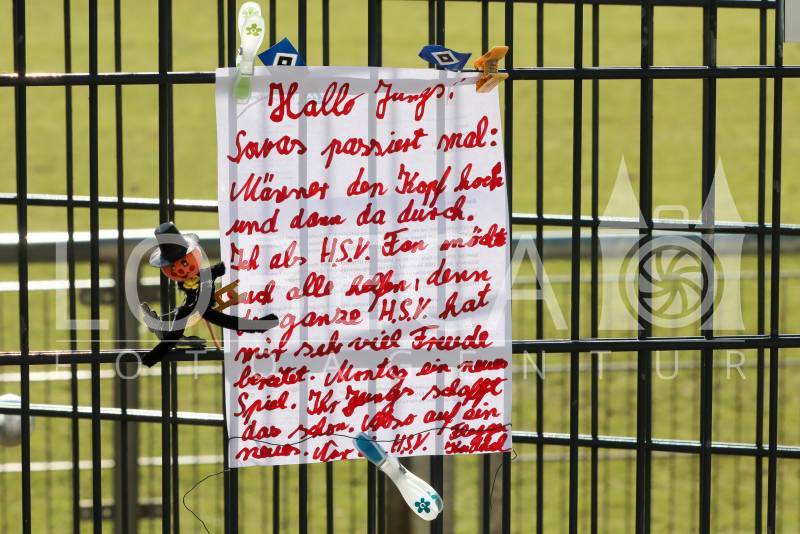 Hallo Jungs!
Sowas passiert mal:
Männer den Kopf hoch
und dann da durch.
Ich als H.S.V. Fan möchte
euch alle helfen, denn
die ganze H.S.V. hat
mir seh viel Freude
bereitet. Montag ein neues
Spiel. Ihr Jungs schafft
das schon. Also auf ein
neues. Nur H.S.V.
LOBECA
FOTOAGENTUR